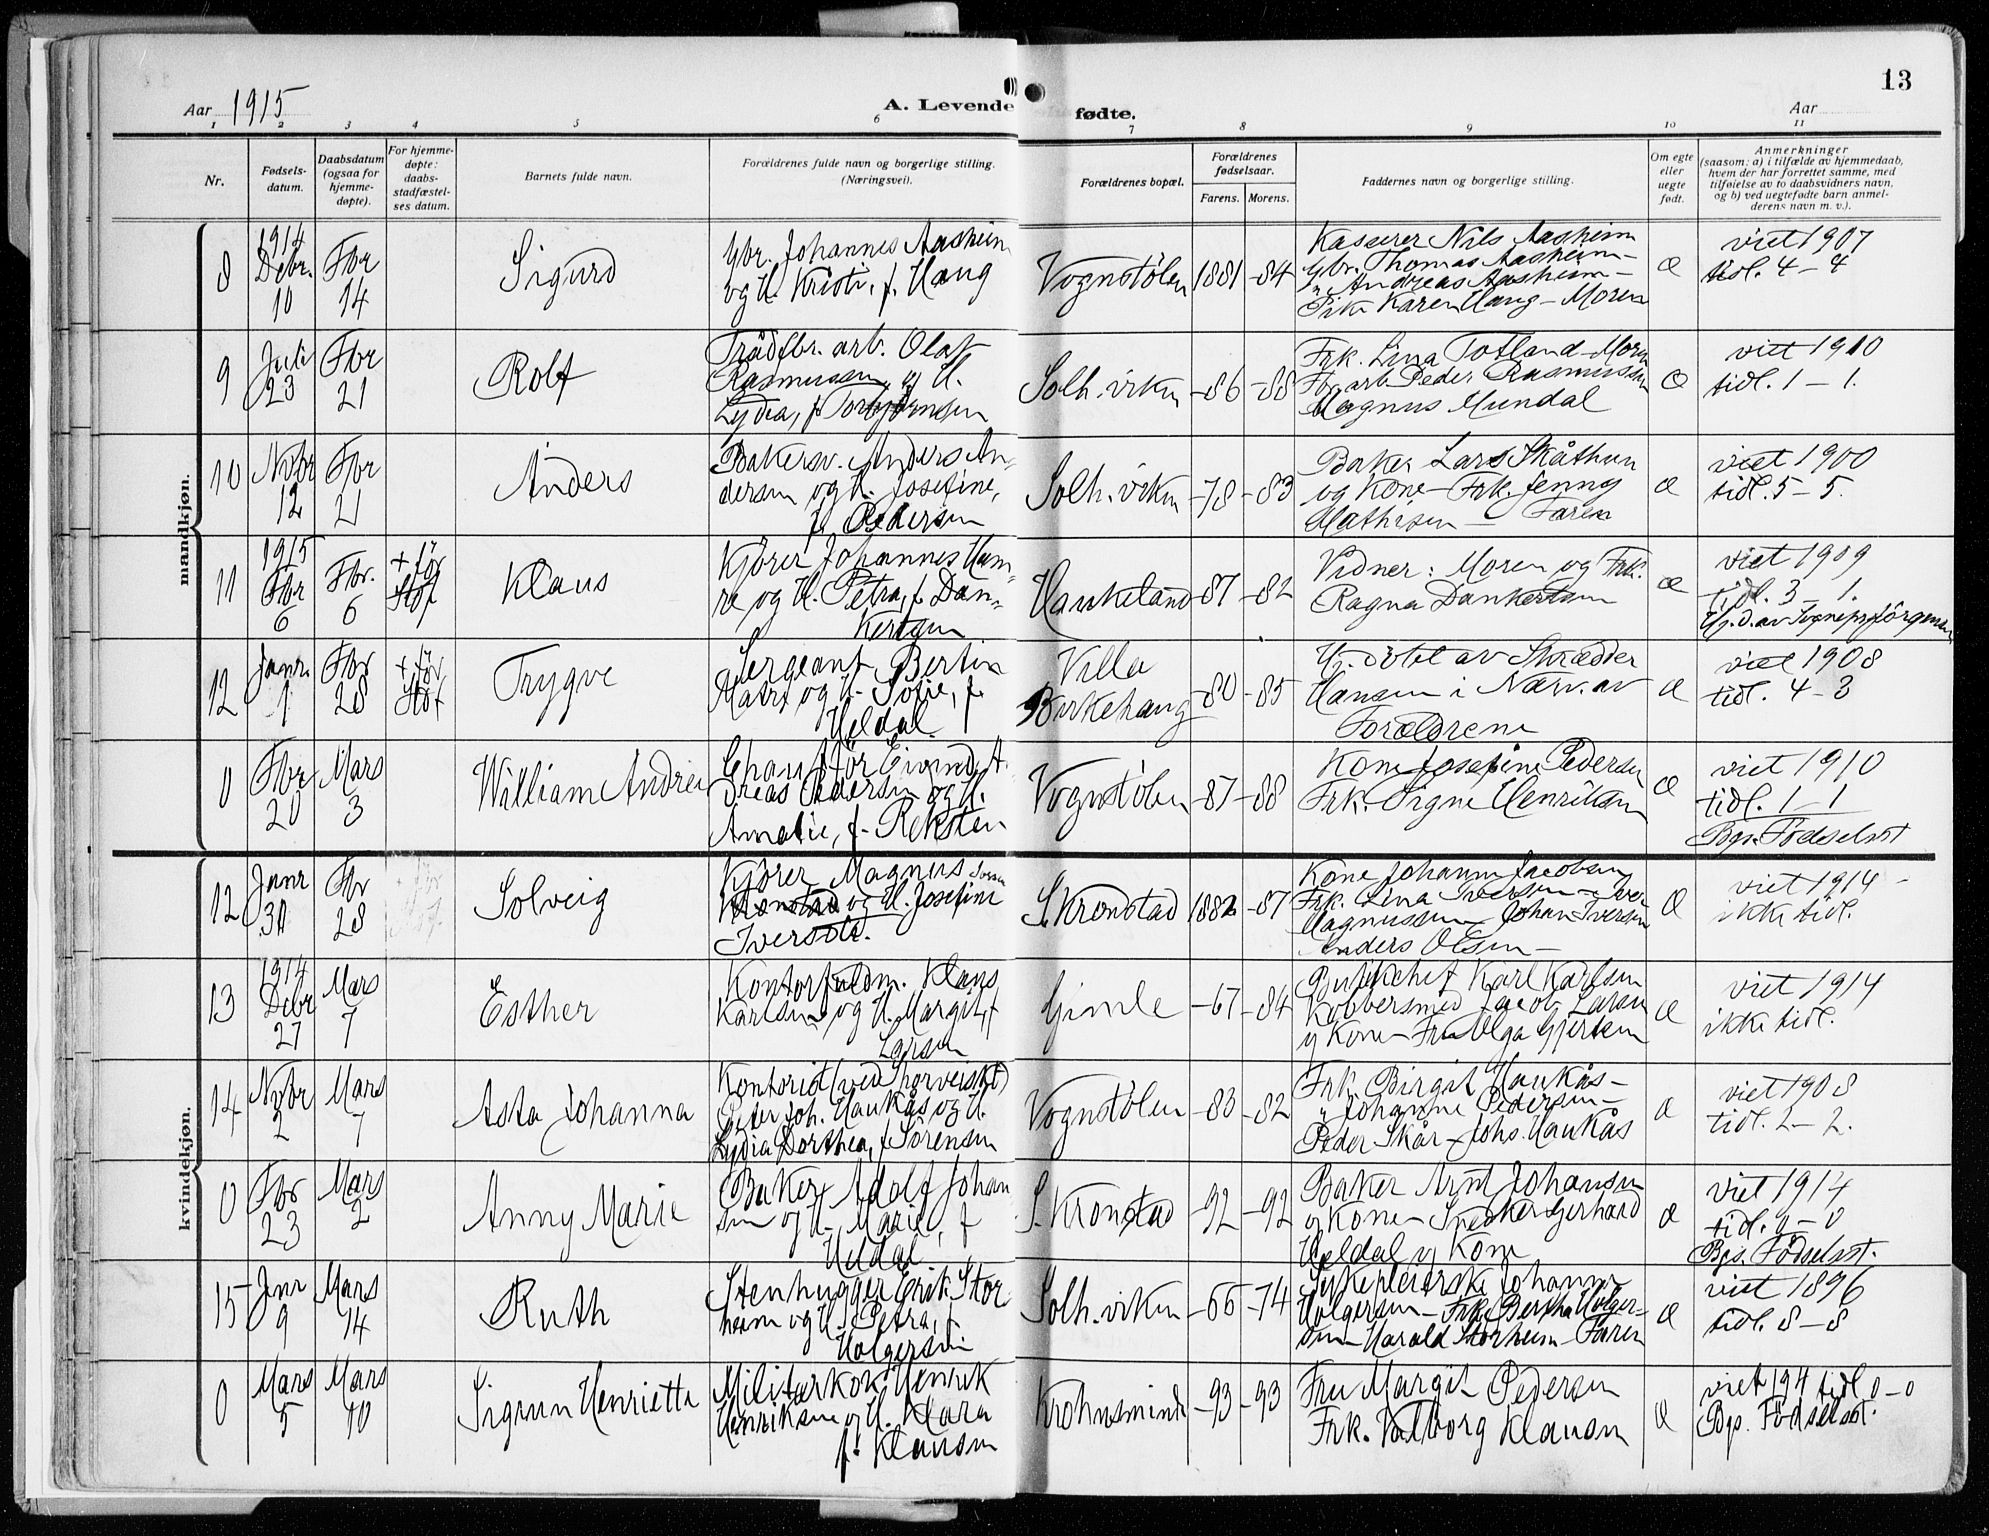 13
Aar 1915
A. Levende fødte.
Aar
1 2 3 4 5 6 7 8 9 10 11
Nr.
Fødsels-
datum.
Daabsdatum
(ogsaa for
hjemme-
døpte).
For hjemme-
døpte:
daabs-
stadfæstel-
ses datum.
Barnets fulde navn.
Forældrenes fulde navn og borgerlige stilling.
(Næringsvei).
Forældrenes bopæl.
Forældrenes
fødselsaar.
Farens. Morens.
Faddernes navn og borgerlige stilling.
Om egte
eller
uegte
født.
Anmerkninger
(saasom: a) i tilfælde av hjemmedaab,
hvem der har forrettet samme, med
tilføielse av to daabsvidners navn,
og b) ved uegtefødte barn anmel-
derens navn m. v.).
mandkjøn.
8
1914
Debr.
10
Fbr
14
Sigurd
Gbr. Johannes Aasheim
og H. Kristi, f. Haug
Vognstölen
1881 -84
Kasserer Nils Aasheim
Gbr. Thomas Aasheim-
" Andreas Aasheim-
Pike Karen Haug - Moren
Æ
viet 1907
tidl. 4 - 4
9
Juli
23
Fbr
21
Rolf
Trådfbr. arb. Olaf
Rasmussen og H.
Lydia, f. Torbjörnsen
Solh.viken
-86 -88
Frk. Lina Totland - Moren
Fbr arb. Peder Rasmussen
Magnus Mundal
Æ
viet 1910
tidl. 1 - 1.
10
Nvbr
12
Fbr
21
Anders
Bakersv. Anders An-
dersen og H. Josefine,
f. Pedersen
Solh.viken
-78 -83
Baker Lars Skåthun
og Kone - Frk. Jenny
Mathisen - Faren
æ
viet 1900
tidl. 5 - 5.
11
1915
Fbr
6
Fbr.
6
+ för
Stof
Klaus
Kjörer Johannes Ham-
re og H. Petra, f. Dan-
kertsen
Haukeland
-87 -82
Vidner: Moren og Frk.
Ragna Dankertsen
æ
viet 1909
tidl. 3 - 1.
Hj. d. av Sognepr Jörgensen
12
Janr.
1
Fbr
28
+ för
Stof
Trygve
Sergeant Bertin
og H. Sofie, f.
Heldal.
Villa
Birkehaug
-80 -85
Hj. döbt av Skrædder
Hansen i Nærv. av
Forældrene
æ
viet 1908
tidl. 4 - 3
0
Fbr
20
Mars
3
William Andrea
Chaufför Eivind A.
dreas Pedersen og H.
Amalie, f. Reksten
Vognstölen
-87 -88
Kone Josefine Pedersen
Frk. Signe Henriksen
æ
viet 1910
tidl. 1 - 1
Bgs. Födselsst
kvindekjøn.
12
Janr
30
Fbr
28
Solveig
Kjörer Magnus Iversen
Kronstad og H. Josefine
Iversold.
S. Kronstad
1882 -87
Kone Johanne Jacobsen
Frk. Lina Iversen - Iver
Magnussen Johan Iversen
Anders Olsen -
Æ
viet 1914 -
ikke tidl.
13
1914
Debr
27
Mars
7
Esther
Kontorfuldm. Klaus
Karlsen og H. Margit, f
Larsen
Gimle
-67 -84
Karl Karlsen
Kobbersmed Jacob Larsen
og Kone - Fru Olga Gjertsen
æ
viet 1914
ikke tidl.
14
Nvbr
2
Mars
7
Asta Johanna
Kontorist (ved Sporveisk.)
Peter Joh. Haukås og H.
Lydia Dorthea, f. Sörensen
Vognstölen
-83 -82
Frk. Birgit Haukås -
" Johanne Pedersen -
Peder Skår - Johs. Haukås
æ
viet 1908
tidl. 2 - 2.
0
Fbr
23
Mars
2
Anny Marie
Baker Adolf Johan
sen og H. Marie, f
Heldal
S. Kronstad
-92 -92
Baker Arnt Johansen
og Kone - Snedker Gerhard
Heldal og Kone
æ
viet 1914
tidl. 0 - 0
Bgs. Födselsst.
15
Janr
9
Mars
14
Ruth
Stenhugger Erik Stor
heim og H. Petra, f.
Holgersen
Solh.viken
-66 -74
Sykepleierske Johanne
Holgersen - Frk. Bertha Holger-
sen - Harald Storheim - Faren
æ
viet 1896
tidl. 8 - 8
0
Mars
5
Mars
10
Sigrun Henriette
Militærkok Henrik
Henriksen og H. Klara
f. Klausen
Krohnsminde
-93 -93
Fru Margit Pedersen
Frk. Valborg Klausen
Æ
viet 194 tidl 0 - 0
Bgs. Födselsst.